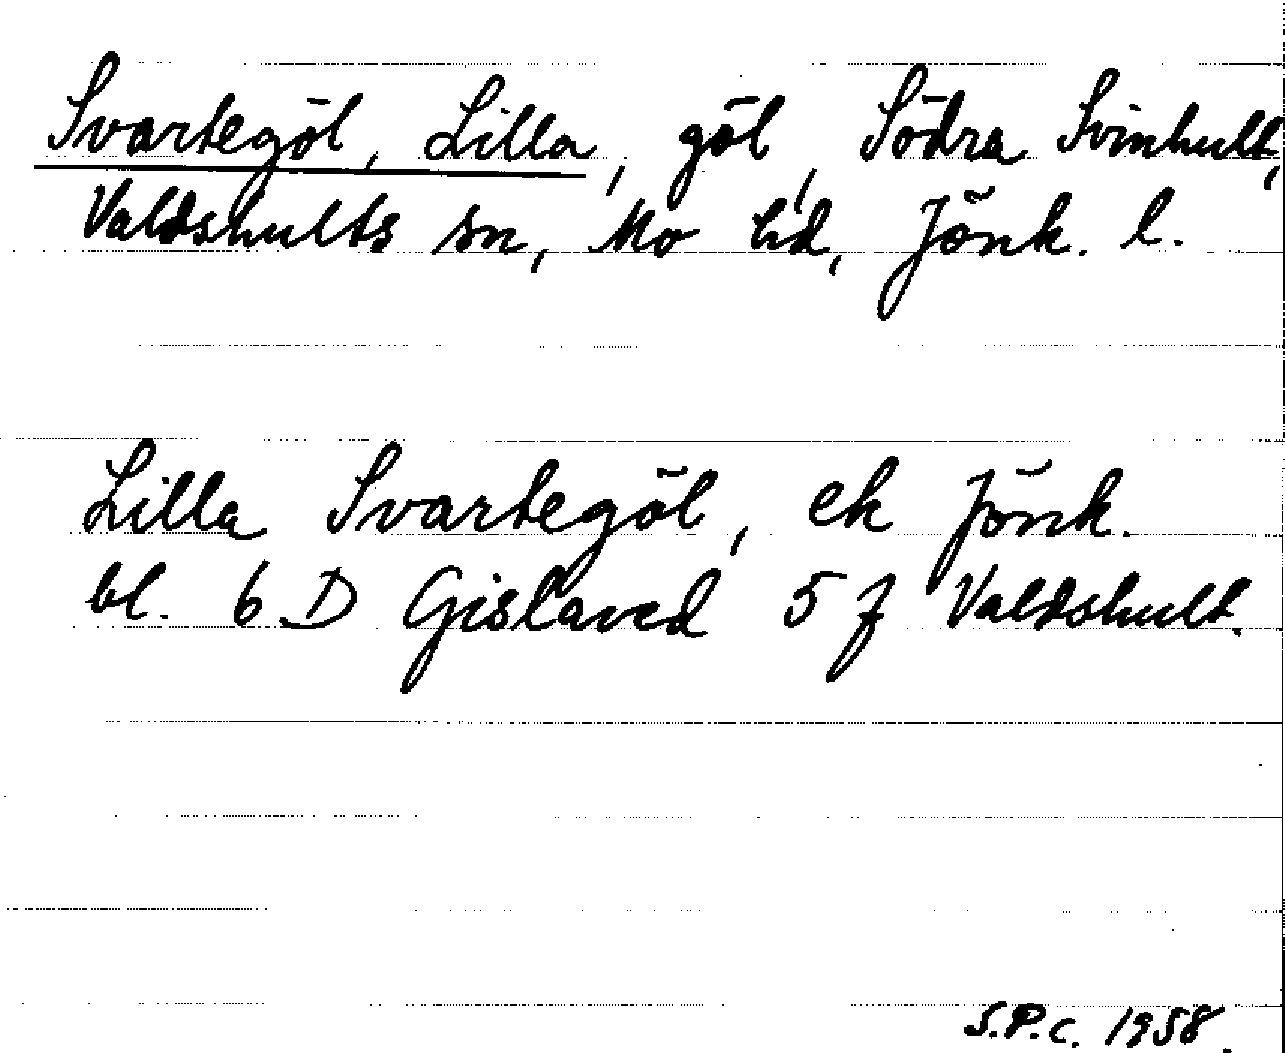 Svartegöl, Lilla, göl, Södra Svinhult,
Valdshults sn, Mo hd, Jönk. l.
Lilla Svartegöl, ek Jönk.
bl. 6 D Gislaved 5 j Valdshult.
S.P.C. 1958.